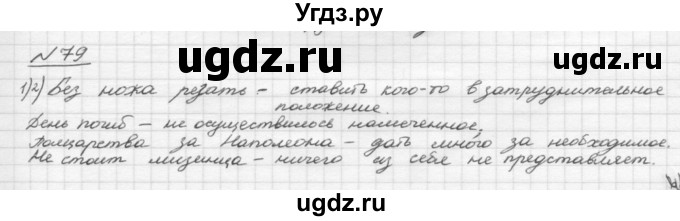 Угдз.ру
ugdz.ru ugdz.ru
№79
1)2) Без ножа резать – ставить кого-то в затруднительное
положение.
День погиб – не осуществилось намеченное,
Полцарства за Наполеона – дать много за необходимое.
Не стоит мизинца – ничего из себя не представляет.
ugdz.ru ugdz.ru
Угдз.ру